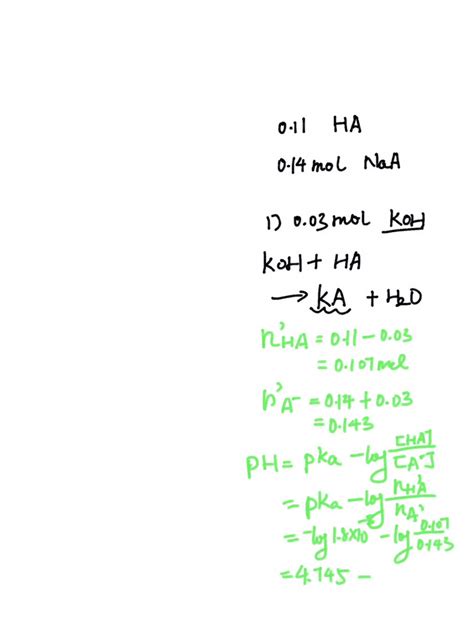 0.11 HA
0.14 mol NaA
1) 0.03 mol KOH
KOH + HA
→ KA + H2O
n'HA = 0.11 - 0.03
= 0.107 mol
n'A- = 0.14 + 0.03
= 0.143
PH = pka - log [HA]/[A-]
= pka - log nHA'/nA'
= -log 1.8x10 - log 0.107/0.143
= 4.745 -